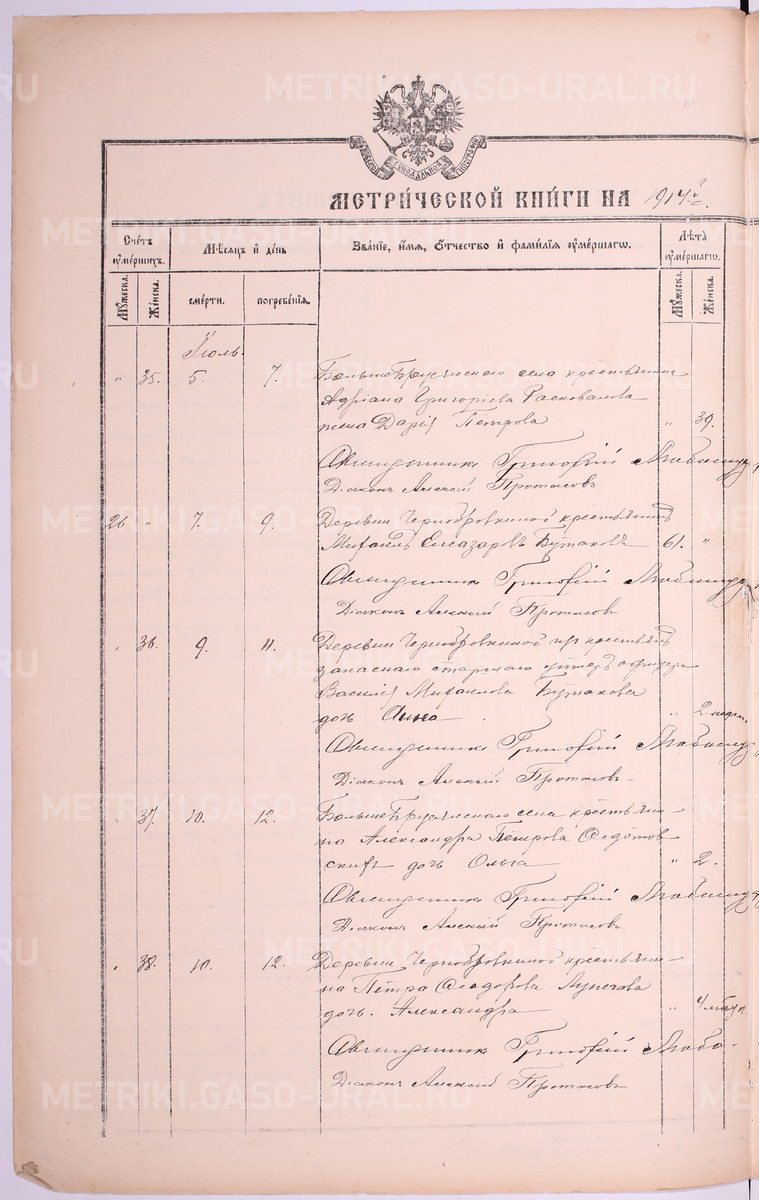 МЕТРИЧЕСКОЙ КНИГИ НА 1914 г.
Счетъ умершихъ.
Мѣсяцъ и день
Званіе, имя, отчество и фамилія умершаго.
Лѣта умершаго.
Мужеска.
Женска.
смерти.
погребенія.
Мужеска.
Женска.
Іюль.
" 35. 5. 7. Больше-Брусянскаго села крестьянина
Адріана Григоріева Расковалова
жена Дарія Петрова " 39.
Священникъ Григорій
Діаконъ Алексій Протасовъ
26 " 7. 9. Деревни Чернобровкиной крестьянинъ
Михаилъ Елеазаровъ Бутаковъ 61. "
Священникъ Григорій
Діаконъ Алексій Протасовъ
" 36. 9. 11. Деревни Чернобровкиной крестьян.
запаснаго старшаго унтеръ офицера
Василія Михаилова Бутакова
дочь Анна " 2 недѣл.
Священникъ Григорій
Діаконъ Алексій Протасовъ
" 37. 10. 12. Больше-Брусянскаго села крестьяни-
на Александра Петрова Ѳедотов-
скихъ дочь Ольга " 2.
Священникъ Григорій
Діаконъ Алексій Протасовъ
" 38. 10. 12. Деревни Чернобровкиной крестьяни-
на Петра Ѳеодорова
дочь Александра " 4 мѣсяц
Священникъ Григорій
Діаконъ Алексій Протасовъ
METRIKI.GASO-URAL.RU